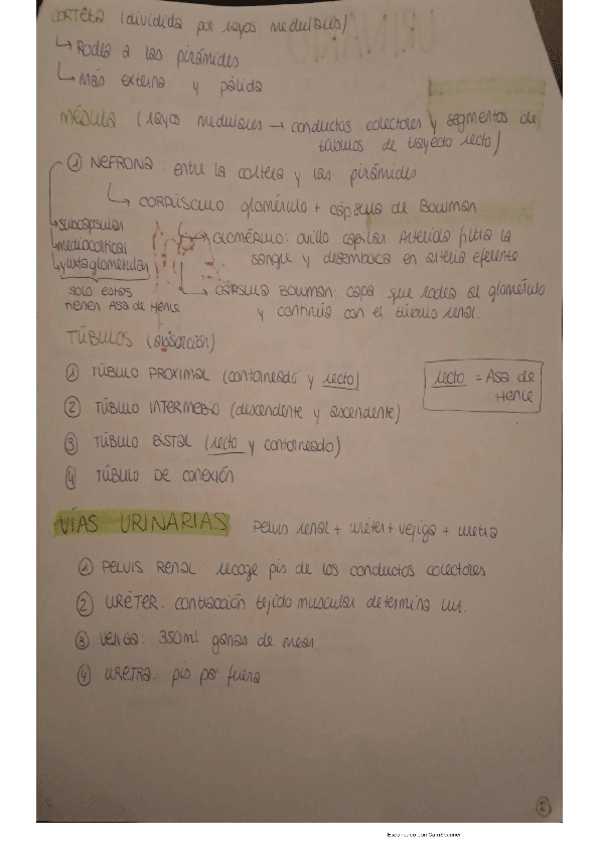 CORTEZA (dividida por rayos medulares)
↳ Rodea a las pirámides
↳ Más externa y pálida
MÉDULA (rayos medulares → conductos colectores y segmentos de
túbulos de trayecto recto)
① NEFRONA: entre la corteza y las pirámides
↳ CORPÚSCULO: glomérulo + cápsula de Bowman
↳ subcapsular
↳ mediocortical
↳ yuxtaglomerular
solo estas
tienen Asa de Henle
→ GLOMÉRULO: ovillo capilar. Arteriola filtra la
sangre y desemboca en arteria eferente
→ CÁPSULA BOWMAN: capa que rodea al glomérulo
y continúa con el túbulo renal.
TÚBULOS (absorción)
① TÚBULO PROXIMAL (contorneado y recto)
② TÚBULO INTERMEDIO (descendente y ascendente)
③ TÚBULO DISTAL (recto y contorneado)
④ TÚBULO DE CONEXIÓN
recto = Asa de
Henle
VÍAS URINARIAS pelvis renal + uréter + vejiga + uretra
① PELVIS RENAL: recoge pis de los conductos colectores
② URÉTER: contracción tejido muscular determina
③ VEJIGA: 350ml ganas de mear
④ URETRA: pis pa' fuera
Escaneado con CamScanner